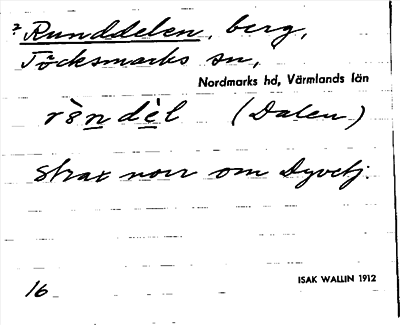 ? Runddelen, berg,
Töcksmarks sn,
Nordmarks hd, Värmlands län
(Dalen)
strax norr om Dyvetj.
16
ISAK WALLIN 1912